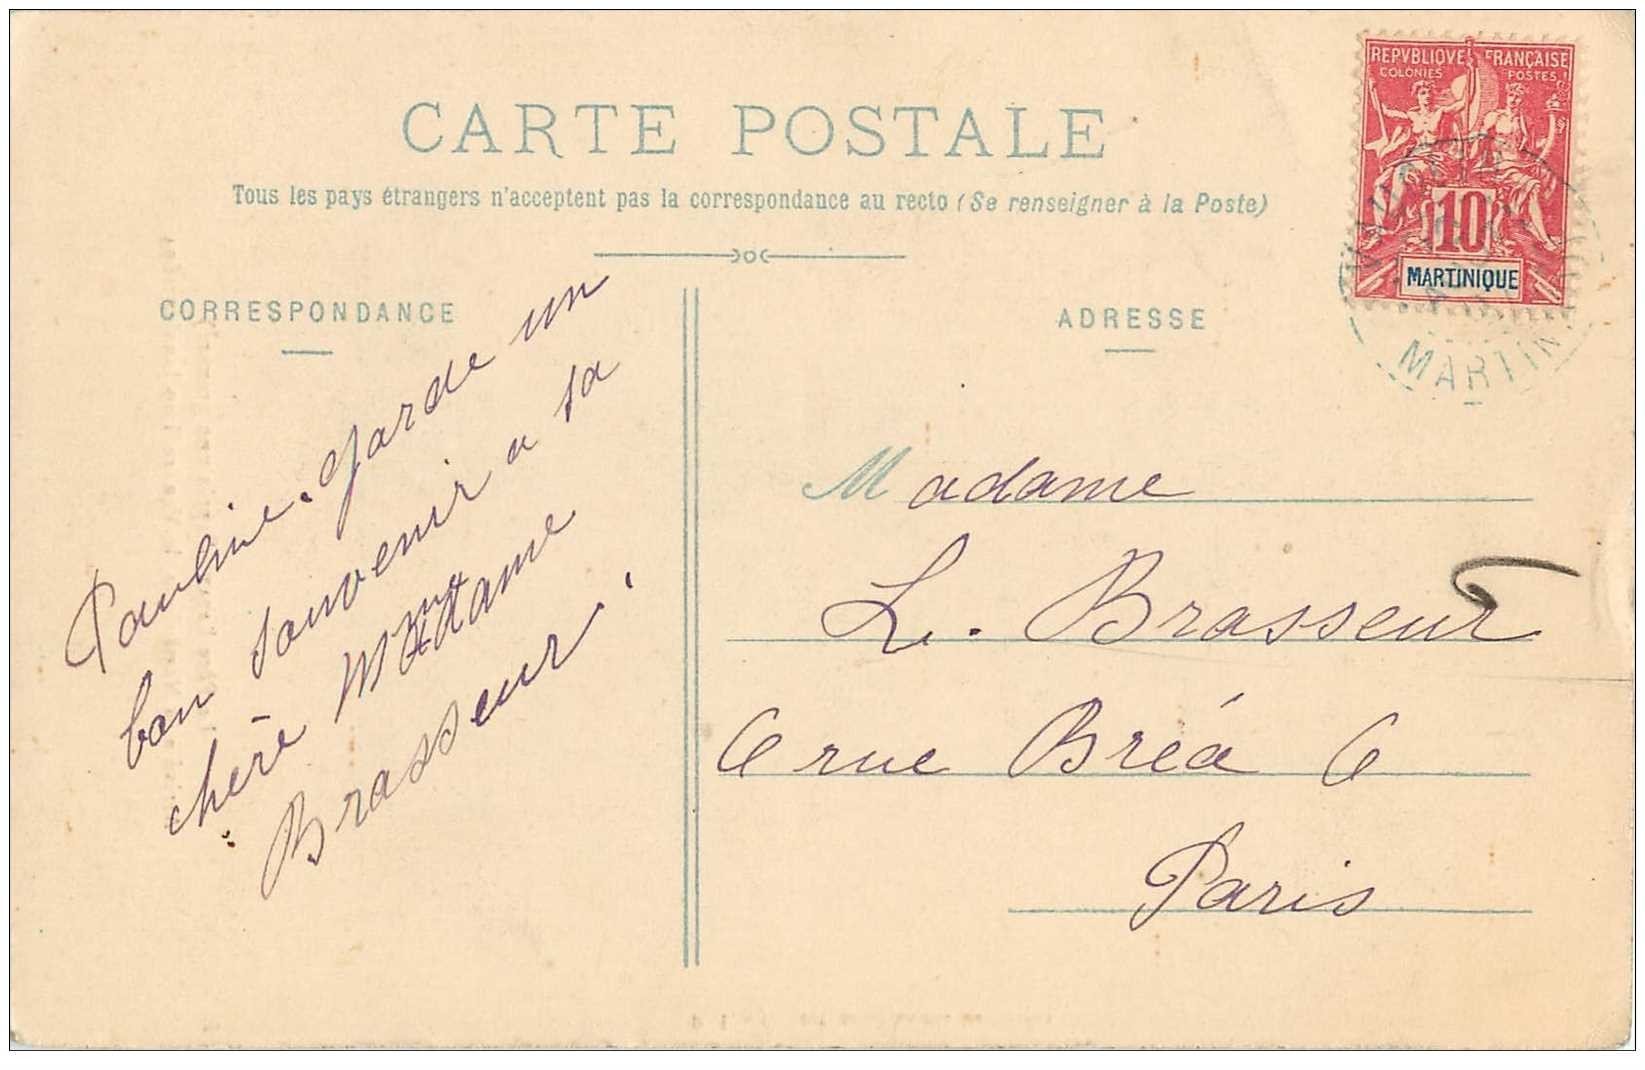 REPVBLIQVE FRANÇAISE
COLONIES POSTES
10
MARTINIQUE
MARTIN
CARTE POSTALE
Tous les pays étrangers n'acceptent pas la correspondance au recto (Se renseigner à la Poste)
CORRESPONDANCE
Pauline. garde un
bon souvenir a sa
chère Madame
Brasseur.
ADRESSE
Madame
L. Brasseur
6 rue Bréa 6
Paris